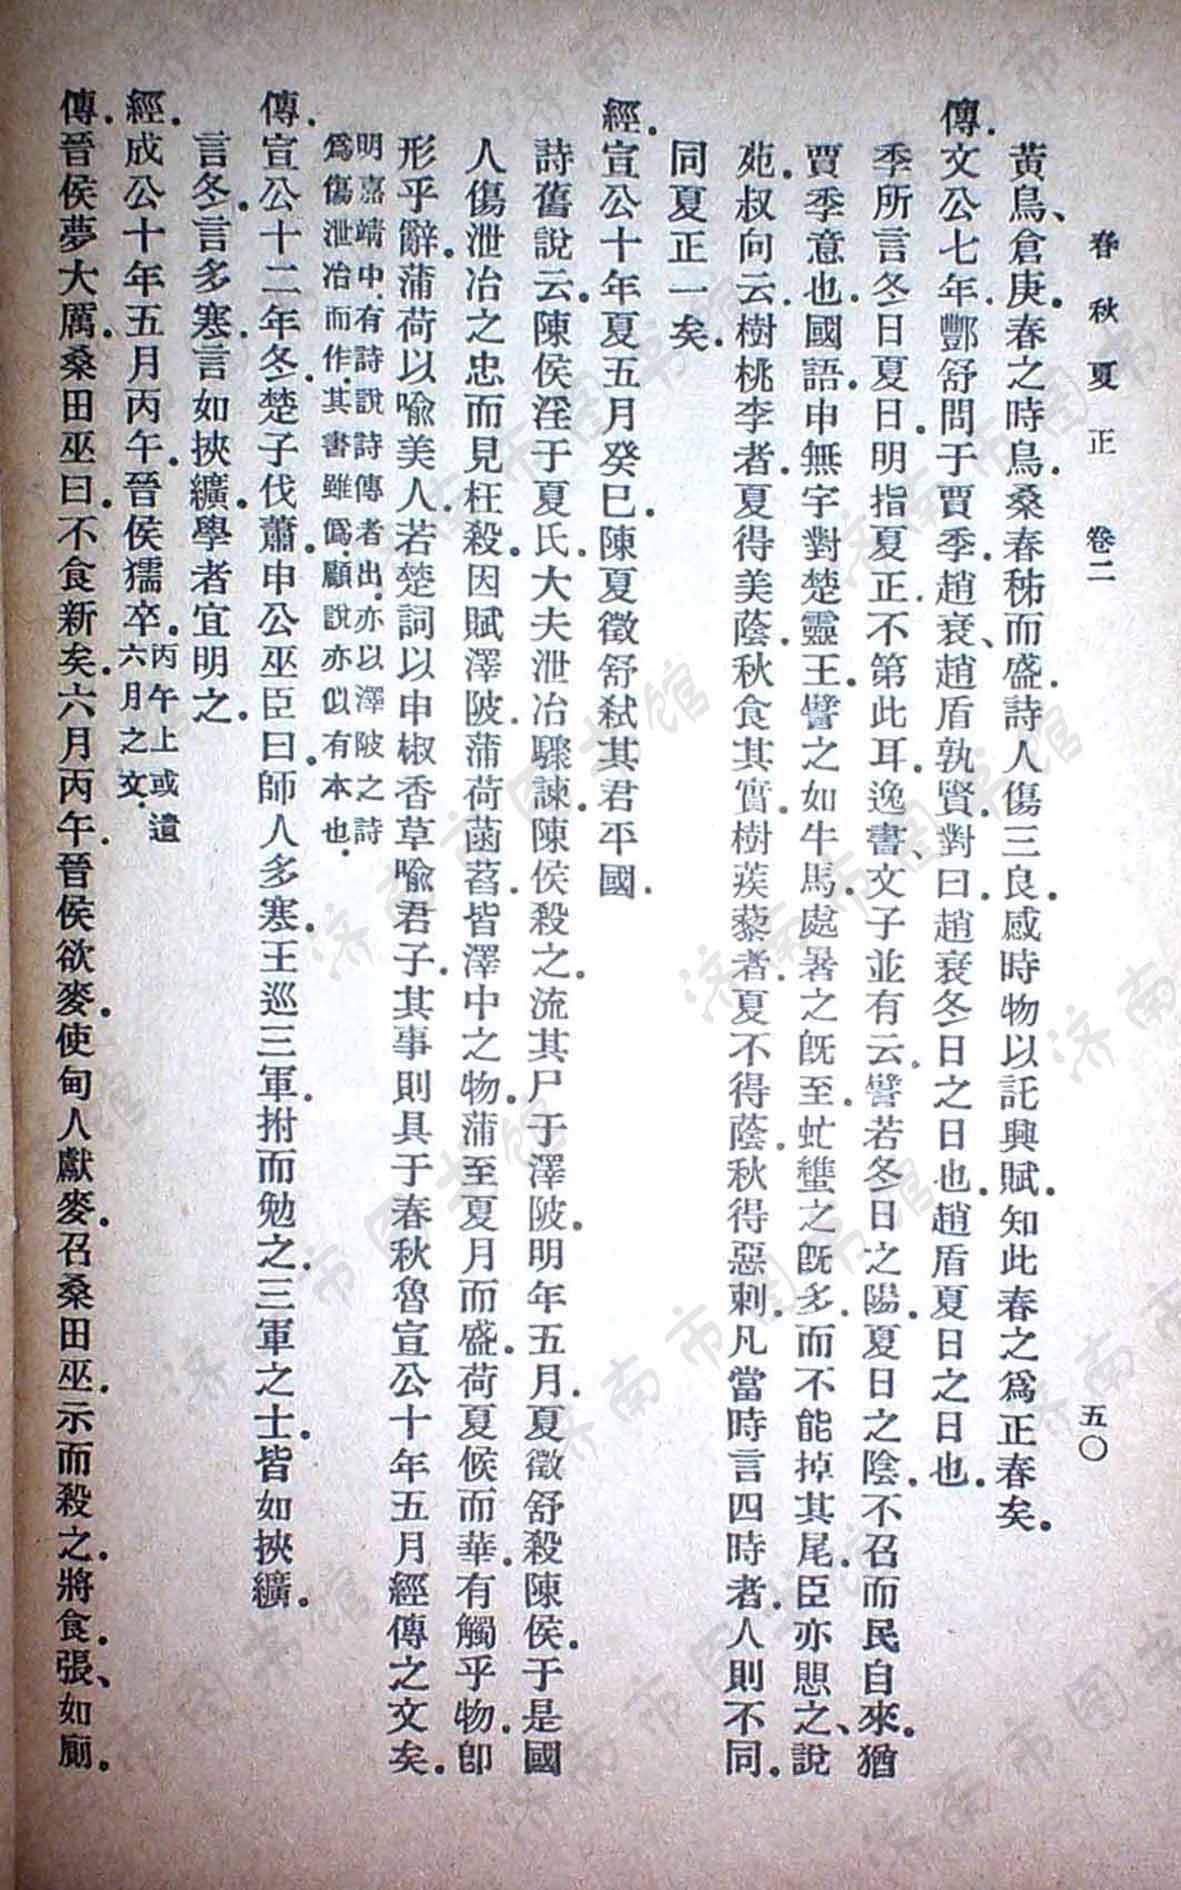 春秋夏正　卷二　五〇
黃鳥、倉庚。春之時鳥。桑春秭而盛。詩人傷三良。感時物以託興賦。知此春之爲正春矣。
傳。文公七年。酆舒問于賈季。趙衰、趙盾孰賢。對曰。趙衰冬日之日也。趙盾夏日之日也。
季所言冬日夏日。明指夏正。不第此耳。逸書、文子並有云。譬若冬日之陽。夏日之陰。不召而民自來。猶
賈季意也。國語。申無宇對楚靈王。譬之如牛馬。處暑之旣至。虻䗽之旣多。而不能掉其尾。臣亦愳之、說
苑。叔向云。樹桃李者。夏得美蔭。秋食其實。樹蒺藜者。夏不得蔭。秋得惡刺。凡當時言四時者。人則不同。
同夏正一矣。
經。宣公十年夏五月癸巳。陳夏徵舒弒其君平國。
詩舊說云。陳侯淫于夏氏。大夫泄冶驟諫。陳侯殺之。流其尸于澤陂。明年五月。夏徵舒殺陳侯。于是國
人傷泄冶之忠而見枉殺。因賦澤陂。蒲荷菡萏。皆澤中之物。蒲至夏月而盛。荷夏候而華。有觸乎物。卽
形乎辭。蒲荷以喩美人。若楚詞以申椒香草喩君子。其事則具于春秋魯宣公十年五月經傳之文矣。
明嘉靖中。有詩說詩傳者出。亦以澤陂之詩
爲傷泄冶而作。其書雖僞。顧說亦似有本也。
傳。宣公十二年冬。楚子伐蕭。申公巫臣曰。師人多寒。王巡三軍。拊而勉之。三軍之士。皆如挾纊。
言冬。言多寒。言如挾纊。學者宜明之。
經。成公十年五月丙午。晉侯獳卒。丙午上或遺
六月之文。
傳。晉侯夢大厲。桑田巫曰。不食新矣。六月丙午。晉侯欲麥。使甸人獻麥。召桑田巫。示而殺之。將食。張、如廁。